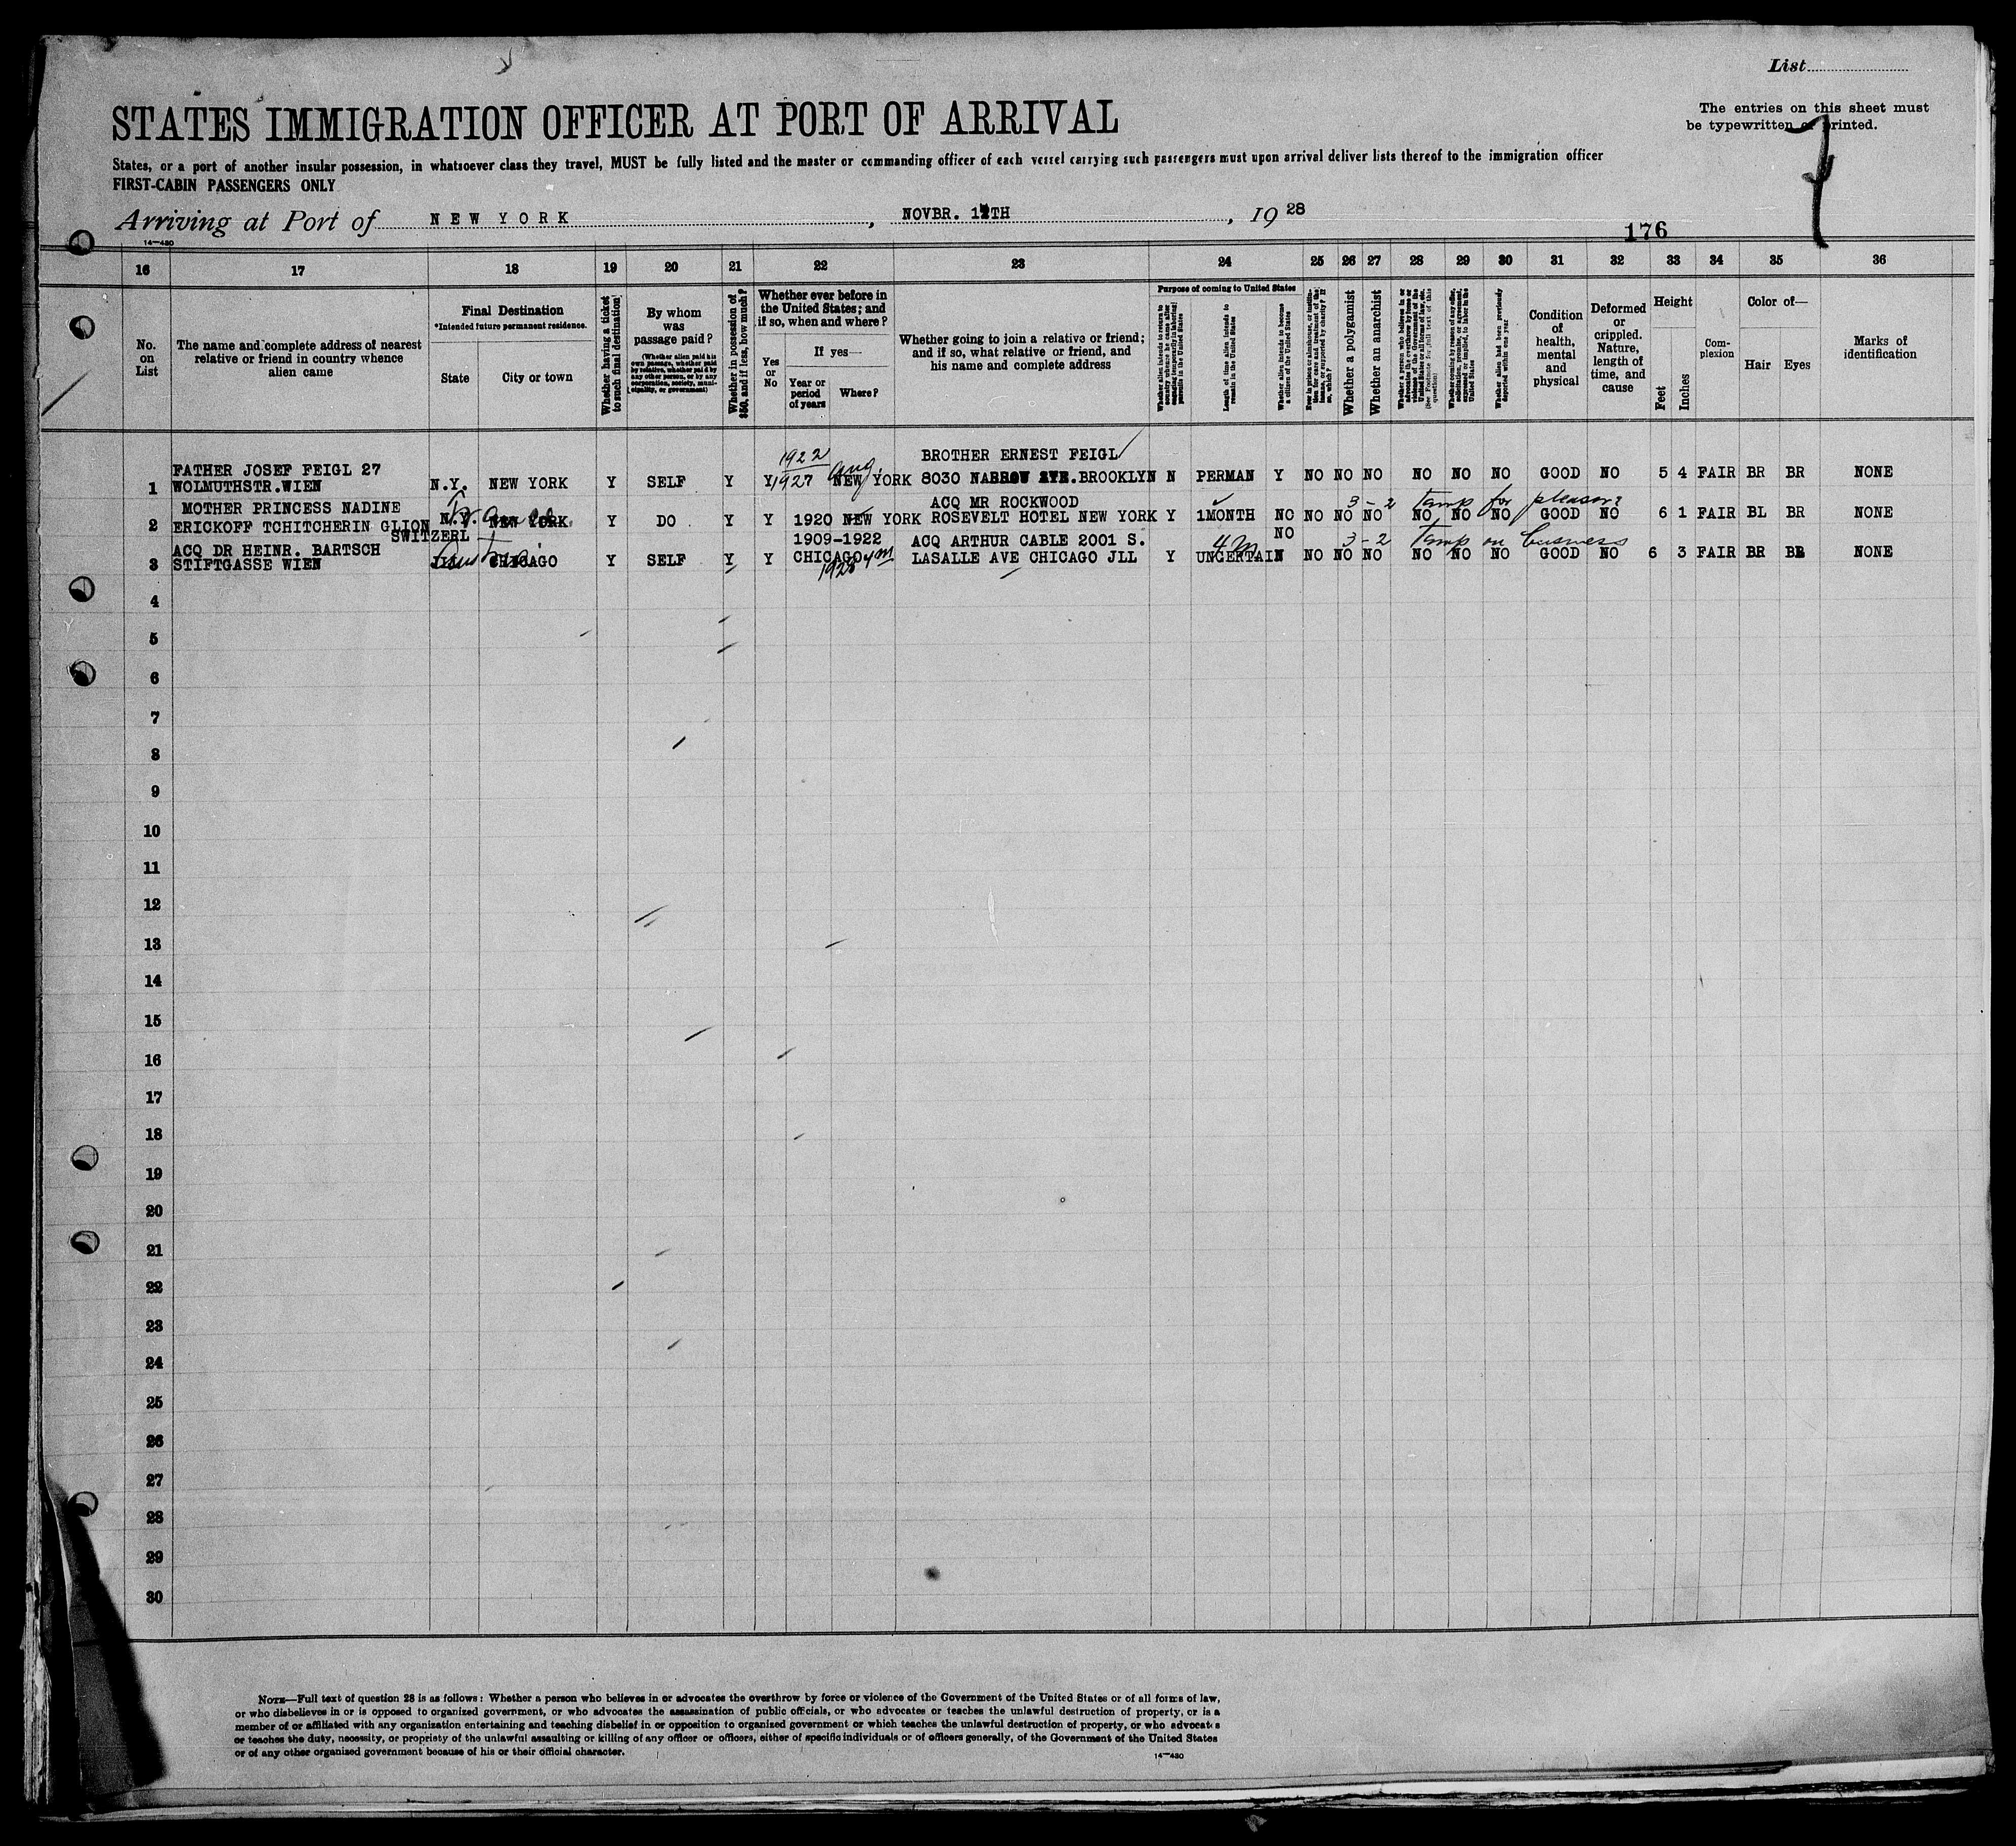 List
STATES IMMIGRATION OFFICER AT PORT OF ARRIVAL
The entries on this sheet must
be typewritten or printed.
States, or a port of another insular possession, in whatsoever class they travel, MUST be fully listed and the master or commanding officer of each vessel carrying such passengers must upon arrival deliver lists thereof to the immigration officer
FIRST-CABIN PASSENGERS ONLY
Arriving at Port of NEW YORK, NOVBR. TH, 1928
14-480
176
16 17 18 19 20 21 22 23 24 25 26 27 28 29 30 31 32 33 34 35 36
No. on List
The name and complete address of nearest relative or friend in country whence alien came
Final Destination
*Intended future permanent residence.
State
City or town
Whether having a ticket to such final destination
By whom was passage paid?
(Whether alien paid his own passage, whether paid by relative, whether paid by any other person, or by any corporation, society, municipality, or government)
Whether in possession of $50, and if less, how much?
Whether ever before in the United States; and if so, when and where?
Yes or No
If yes—
Year or period of years
Where?
Whether going to join a relative or friend; and if so, what relative or friend, and his name and complete address
Purpose of coming to United States
Whether alien intends to return to country whence he came after engaging temporarily in laboring pursuits in the United States
Length of time alien intends to remain in the United States
Whether alien intends to become a citizen of the United States
Ever in prison or almshouse, or institution for care and treatment of the insane, or supported by charity? If so, which?
Whether a polygamist
Whether an anarchist
Whether a person who believes in or advocates the overthrow by force or violence of the Government of the United States or all forms of law, etc. (See footnote for full text of this question)
Whether coming by reason of any offer, solicitation, promise, or agreement, expressed or implied, to labor in the United States
Whether alien had been previously deported within one year
Condition of health, mental and physical
Deformed or crippled. Nature, length of time, and cause
Height
Feet
Inches
Complexion
Color of—
Hair
Eyes
Marks of identification
1922
BROTHER ERNEST FEIGL
FATHER JOSEF FEIGL 27
1 WOLMUTHSTR.WIEN N.Y. NEW YORK Y SELF Y Y 1927 Aug. NEW YORK 8030 AVE.BROOKLYN N PERMAN Y NO NO NO NO NO NO GOOD NO 5 4 FAIR BR BR NONE
MOTHER PRINCESS NADINE ACQ MR ROCKWOOD 3-2 temp for pleasure
2 ERICKOFF TCHITCHERIN GLION N.Y. NEW YORK Y DO Y Y 1920 NEW YORK ROSEVELT HOTEL NEW YORK Y 1MONTH NO NO NO NO NO NO NO GOOD NO 6 1 FAIR BL BR NONE
SWITZERL
ACQ DR HEINR. BARTSCH Austria 1909-1922 ACQ ARTHUR CABLE 2001 S. 4 m NO 3-2 temp on business
3 STIFTGASSE WIEN CHICAGO Y SELF Y Y CHICAGO LASALLE AVE CHICAGO JLL Y UNCERTAIN NO NO NO NO NO NO GOOD NO 6 3 FAIR BR BR NONE
1928 4m
4
5
6
7
8
9
10
11
12
13
14
15
16
17
18
19
20
21
22
23
24
25
26
27
28
29
30
NOTE—Full text of question 28 is as follows: Whether a person who believes in or advocates the overthrow by force or violence of the Government of the United States or of all forms of law,
or who disbelieves in or is opposed to organized government, or who advocates the assassination of public officials, or who advocates or teaches the unlawful destruction of property, or is a
member of or affiliated with any organization entertaining and teaching disbelief in or opposition to organized government or which teaches the unlawful destruction of property, or who advocates
or teaches the duty, necessity, or propriety of the unlawful assaulting or killing of any officer or officers, either of specific individuals or of officers generally, of the Government of the United States
or of any other organized government because of his or their official character.
14-480